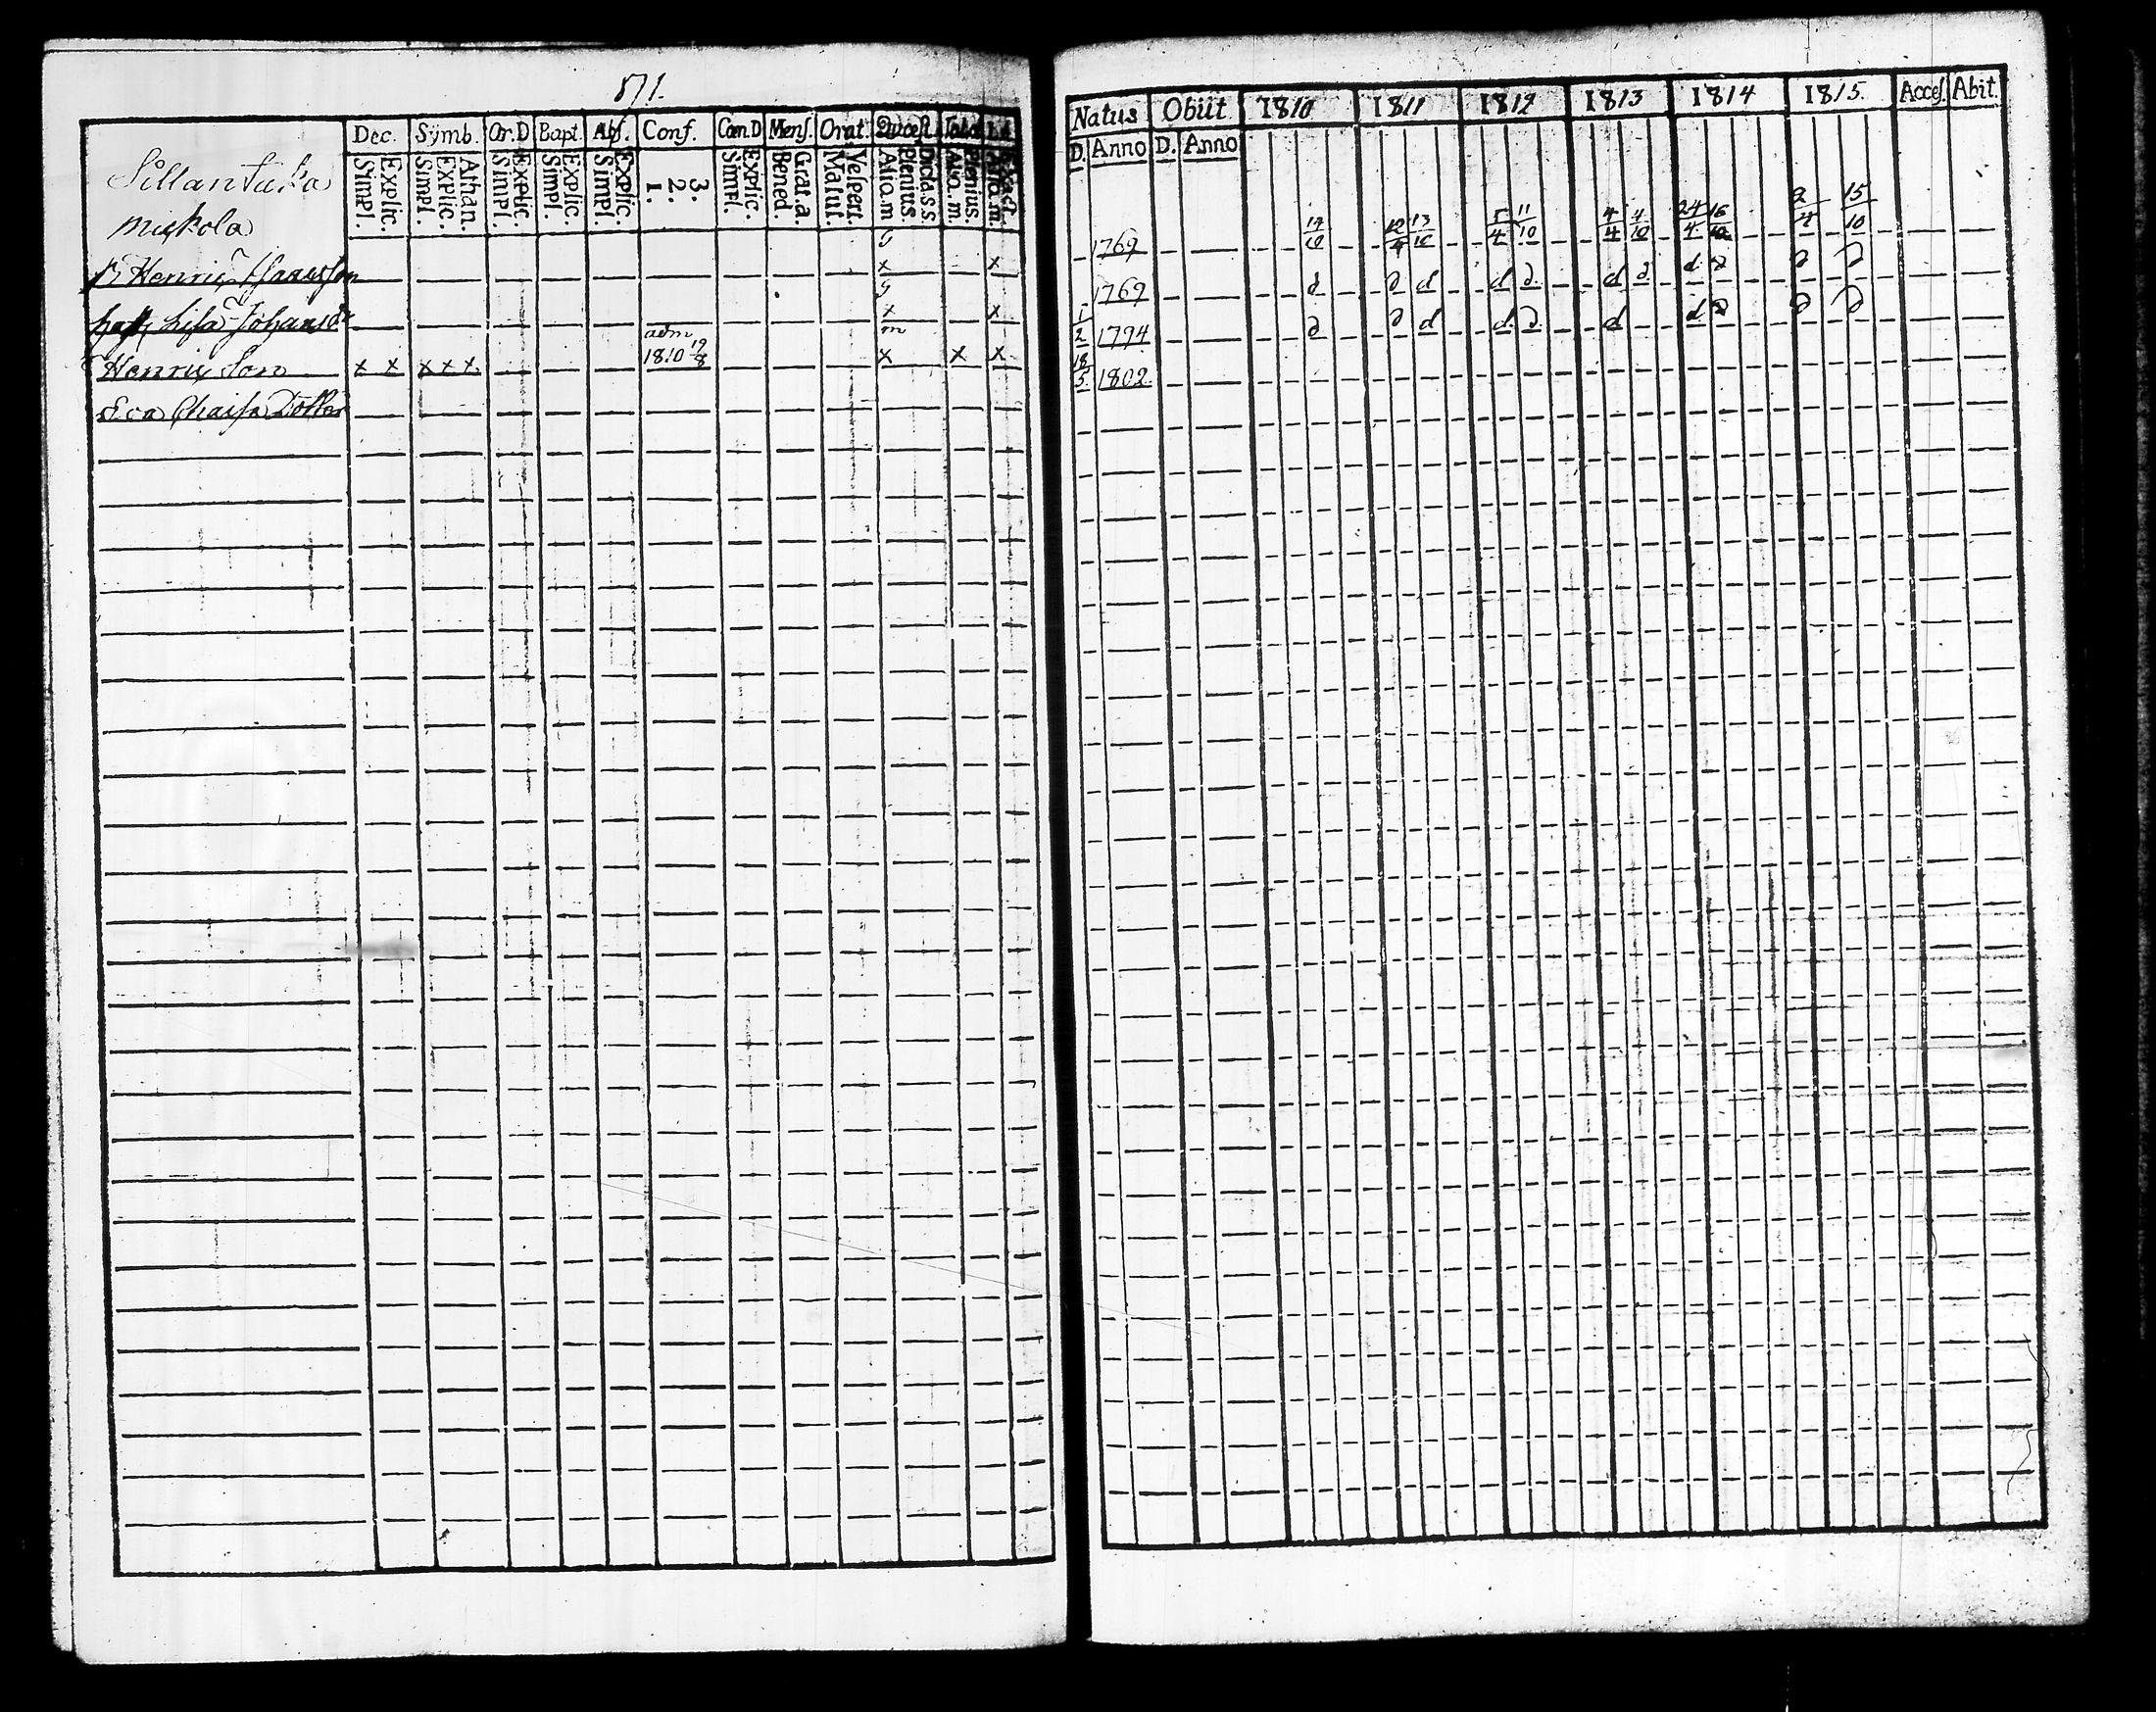 871.
Dec. Symb. Or.D Bapt. Abſ. Conf. Cœn.D Menſ. Orat. Quæſt. Tabul
Simpl. Explic. Simpl. Explic. Athan. Simpl. Explic. Simpl. Explic. Simpl. Explic. 1. 2. 3. Simpl. Explic. Bened. Grat. a. Matut. Veſpert. Alio. m Plenius. Dicta. S S Alio. m. Plenius. Exact.
Sillantaka
Mickola
Henric
x x
Lisa Johansdr
x x
Henric Son x x x x x. adm. 1810 19/8 m x x x
Eva Chaisa Dotter
Natus Obiit 1810 1811 1812 1813 1814 1815. Acceſ. Abit.
D. Anno D. Anno
1769 14/10 12/4 13/10 5/4 11/10 4/4 4/10 24/4 16/10 2/4 15/10
1769 d d d d d. d d d d d d
1/2 1794 d d d d. d. d d d d d
18/5. 1802.